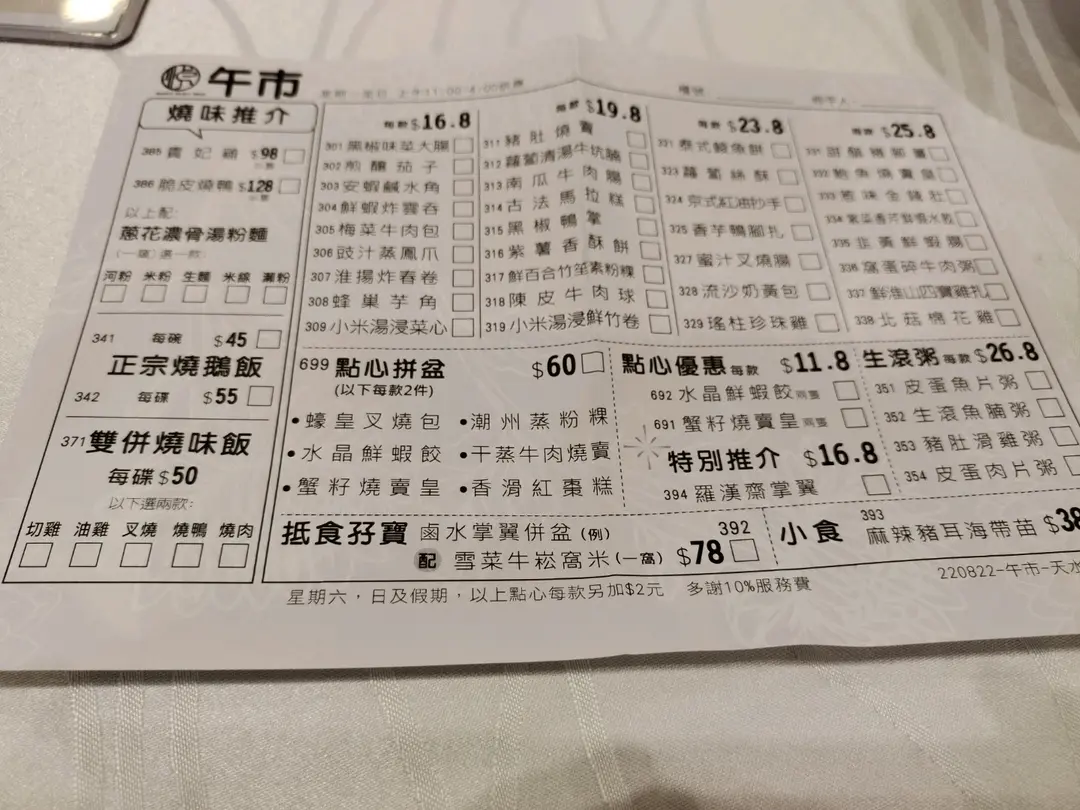 午市
燒味推介
385 貴妃雞 $98
386 脆皮燒鴨 $128
以上配:
蔥花濃骨湯粉麵
(一窩)選一款:
河粉 米粉 生麵 米線 瀨粉
341 每碗 $45
正宗燒鵝飯
342 每碟 $55
371 雙併燒味飯
每碟 $50
以下選兩款:
切雞 油雞 叉燒 燒鴨 燒肉
每款 $16.8
301 黑椒味菜大腸
302 煎釀茄子
303 安蝦鹹水角
304 鮮蝦炸雲吞
305 梅菜牛肉包
306 豉汁蒸鳳爪
307 淮揚炸春卷
308 蜂巢芋角
309 小米湯浸菜心
每款 $19.8
311 豬肚燒賣
312 蘿蔔清湯牛坑腩
313 南瓜牛肉腸
314 古法馬拉糕
315 黑椒鴨掌
316 紫薯香酥餅
317 鮮百合竹笙素粉粿
318 陳皮牛肉球
319 小米湯浸鮮竹卷
每款 $23.8
321 泰式鯪魚餅
323 蘿蔔絲酥
324 京式紅油抄手
325 香芋鴨腳扎
327 蜜汁叉燒腸
328 流沙奶黃包
329 瑤柱珍珠雞
每款 $25.8
332 鮑魚燒賣皇
333 蔥味金錢肚
335 韭黃鮮蝦腸
336 窩蛋碎牛肉粥
337 鮮淮山四寶雞扎
338 北菇棉花雞
699 點心拼盆 $60
(以下每款2件)
•蠔皇叉燒包 •潮州蒸粉粿
•水晶鮮蝦餃 •干蒸牛肉燒賣
•蟹籽燒賣皇 •香滑紅棗糕
點心優惠 每款 $11.8
692 水晶鮮蝦餃 兩隻
691 蟹籽燒賣皇 兩隻
特別推介 $16.8
394 羅漢齋掌翼
生滾粥 每款 $26.8
351 皮蛋魚片粥
352 生滾魚腩粥
353 豬肚滑雞粥
354 皮蛋肉片粥
抵食孖寶 鹵水掌翼併盆(例) 392
配 雪菜牛崧窩米(一窩) $78
小食 393 麻辣豬耳海帶苗 $38
星期六,日及假期,以上點心每款另加$2元 多謝10%服務費
220822-午市-天水